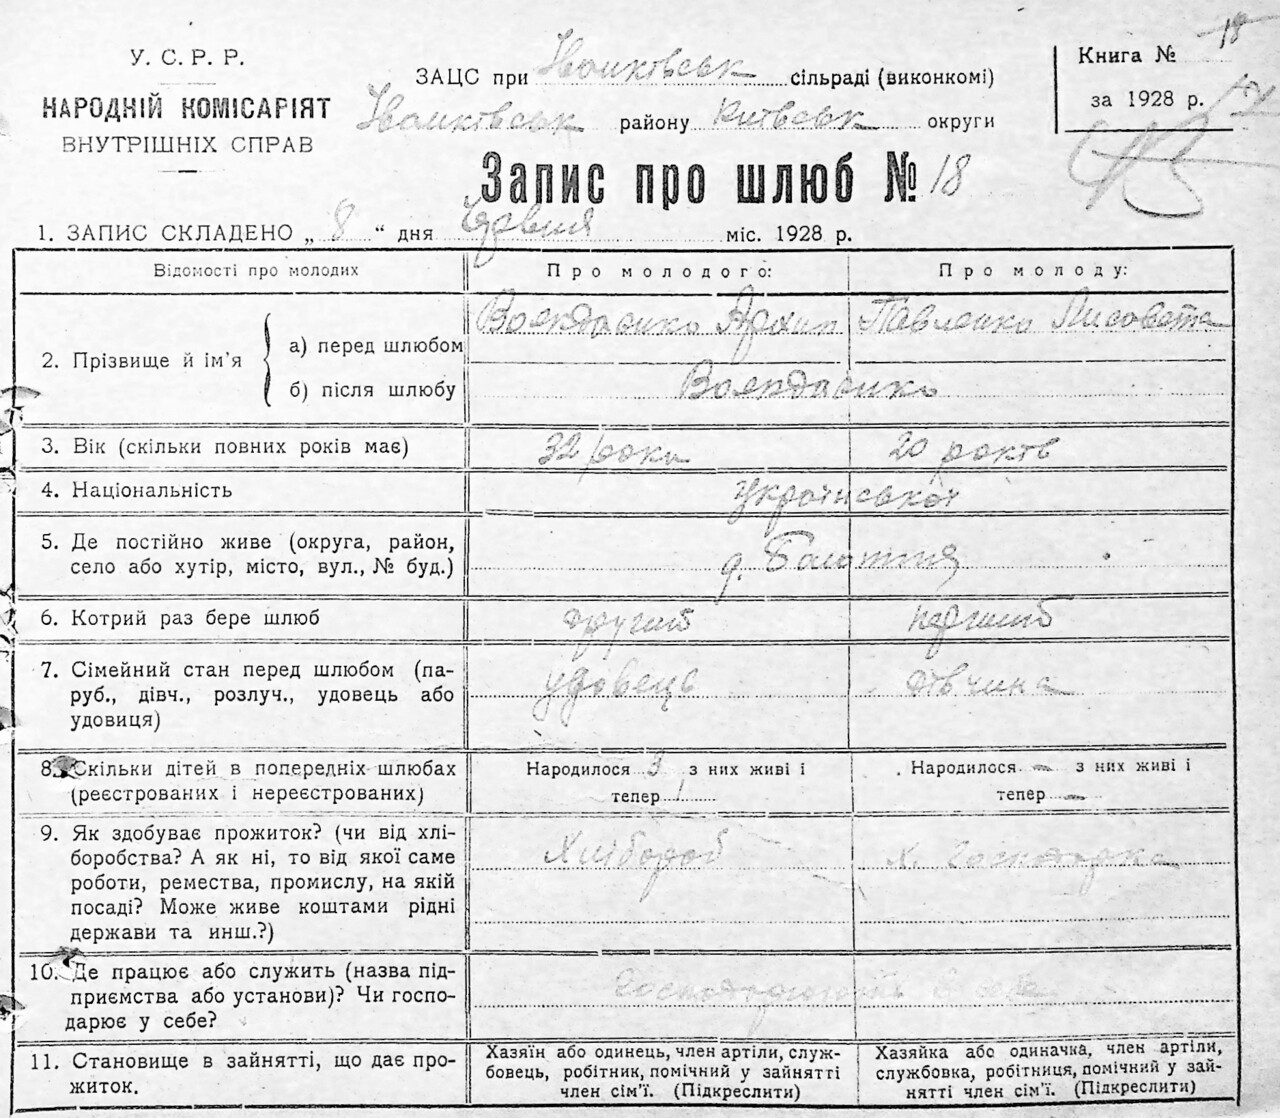 У. С. Р. Р.
НАРОДНІЙ КОМІСАРІЯТ
ВНУТРІШНІХ СПРАВ
ЗАЦС при Іванківськ сільраді (виконкомі)
Іванківськ району Київськ округи
Книга № 18
за 1928 р.
Запис про шлюб № 18
1. ЗАПИС СКЛАДЕНО „ 8 “ дня Червня міс. 1928 р.
Відомості про молодих
Про молодого:
Про молоду:
2. Прізвище й ім’я
а) перед шлюбом
Архип
Павленко Лисовета
б) після шлюбу
3. Вік (скільки повних років має)
32 роки
20 років
4. Національність
Української
5. Де постійно живе (округа, район,
село або хутір, місто, вул., № буд.)
д. Болотня
6. Котрий раз бере шлюб
другий
перший
7. Сімейний стан перед шлюбом (па-
руб., дівч., розлуч., удовець або
удовиця)
удовець
дівчина
8. Скільки дітей в попередніх шлюбах
(реєстрованих і нереєстрованих)
Народилося 3 з них живі і
тепер 1
Народилося — з них живі і
тепер —
9. Як здобуває прожиток? (чи від хлі-
боробства? А як ні, то від якої саме
роботи, ремества, промислу, на якій
посаді? Може живе коштами рідні
держави та инш.?)
Хлібороб
х. Господарка
10. Де працює або служить (назва під-
приємства або установи)? Чи госпо-
дарює у себе?
11. Становище в зайнятті, що дає про-
житок.
Хазяїн або одинець, член артіли, служ-
бовець, робітник, помічний у зайнятті
член сім’ї. (Підкреслити)
Хазяйка або одиначка, член артіли,
службовка, робітниця, помічний у зай-
нятті член сім’ї. (Підкреслити)